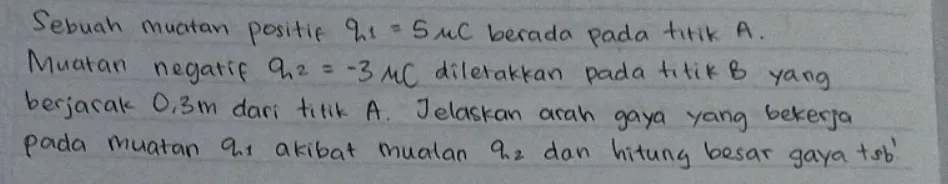 Sebuah muatan positif q1 = 5 μC berada pada titik A.
Muatan negatif q2 = -3 μC diletakkan pada titik B yang
berjarak 0,3m dari titik A. Jelaskan arah gaya yang bekerja
pada muatan q1 akibat mualan q2 dan hitung besar gaya tsb'